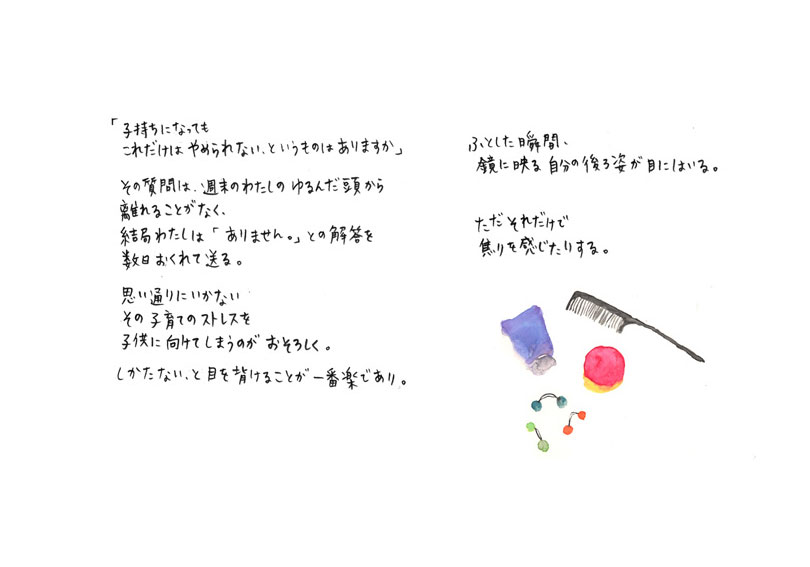 「子持ちになっても
これだけは やめられない、というものは ありますか」
その質問は、週末のわたしの ゆるんだ頭から
離れることがなく、
結局わたしは「ありません。」との解答を
数日おくれて送る。
思い通りにいかない
その子育てのストレスを
子供に向けてしまうのが おそろしく。
しかたない、と 目を背けることが 一番楽であり。
ふとした瞬間、
鏡に映る 自分の後ろ姿が目にはいる。
ただそれだけで
焦りを感じたりする。